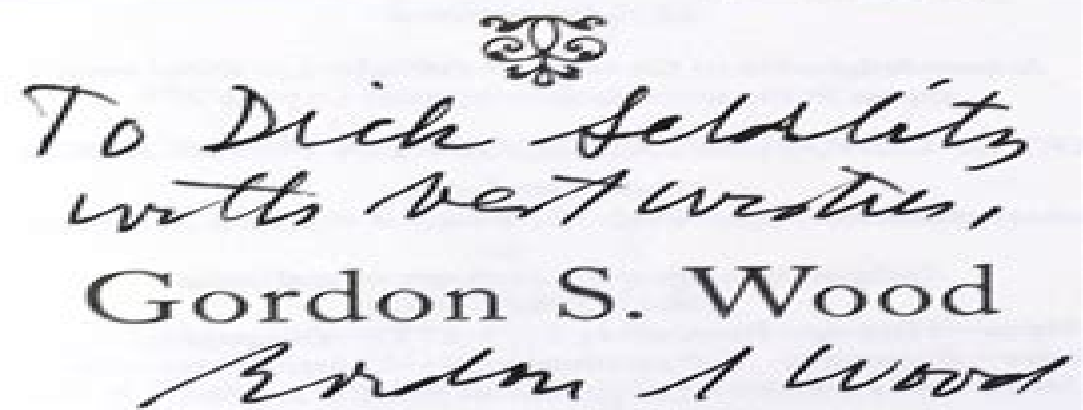 To Dick Seidlitz
with best wishes,
Gordon S. Wood
Gordon S Wood